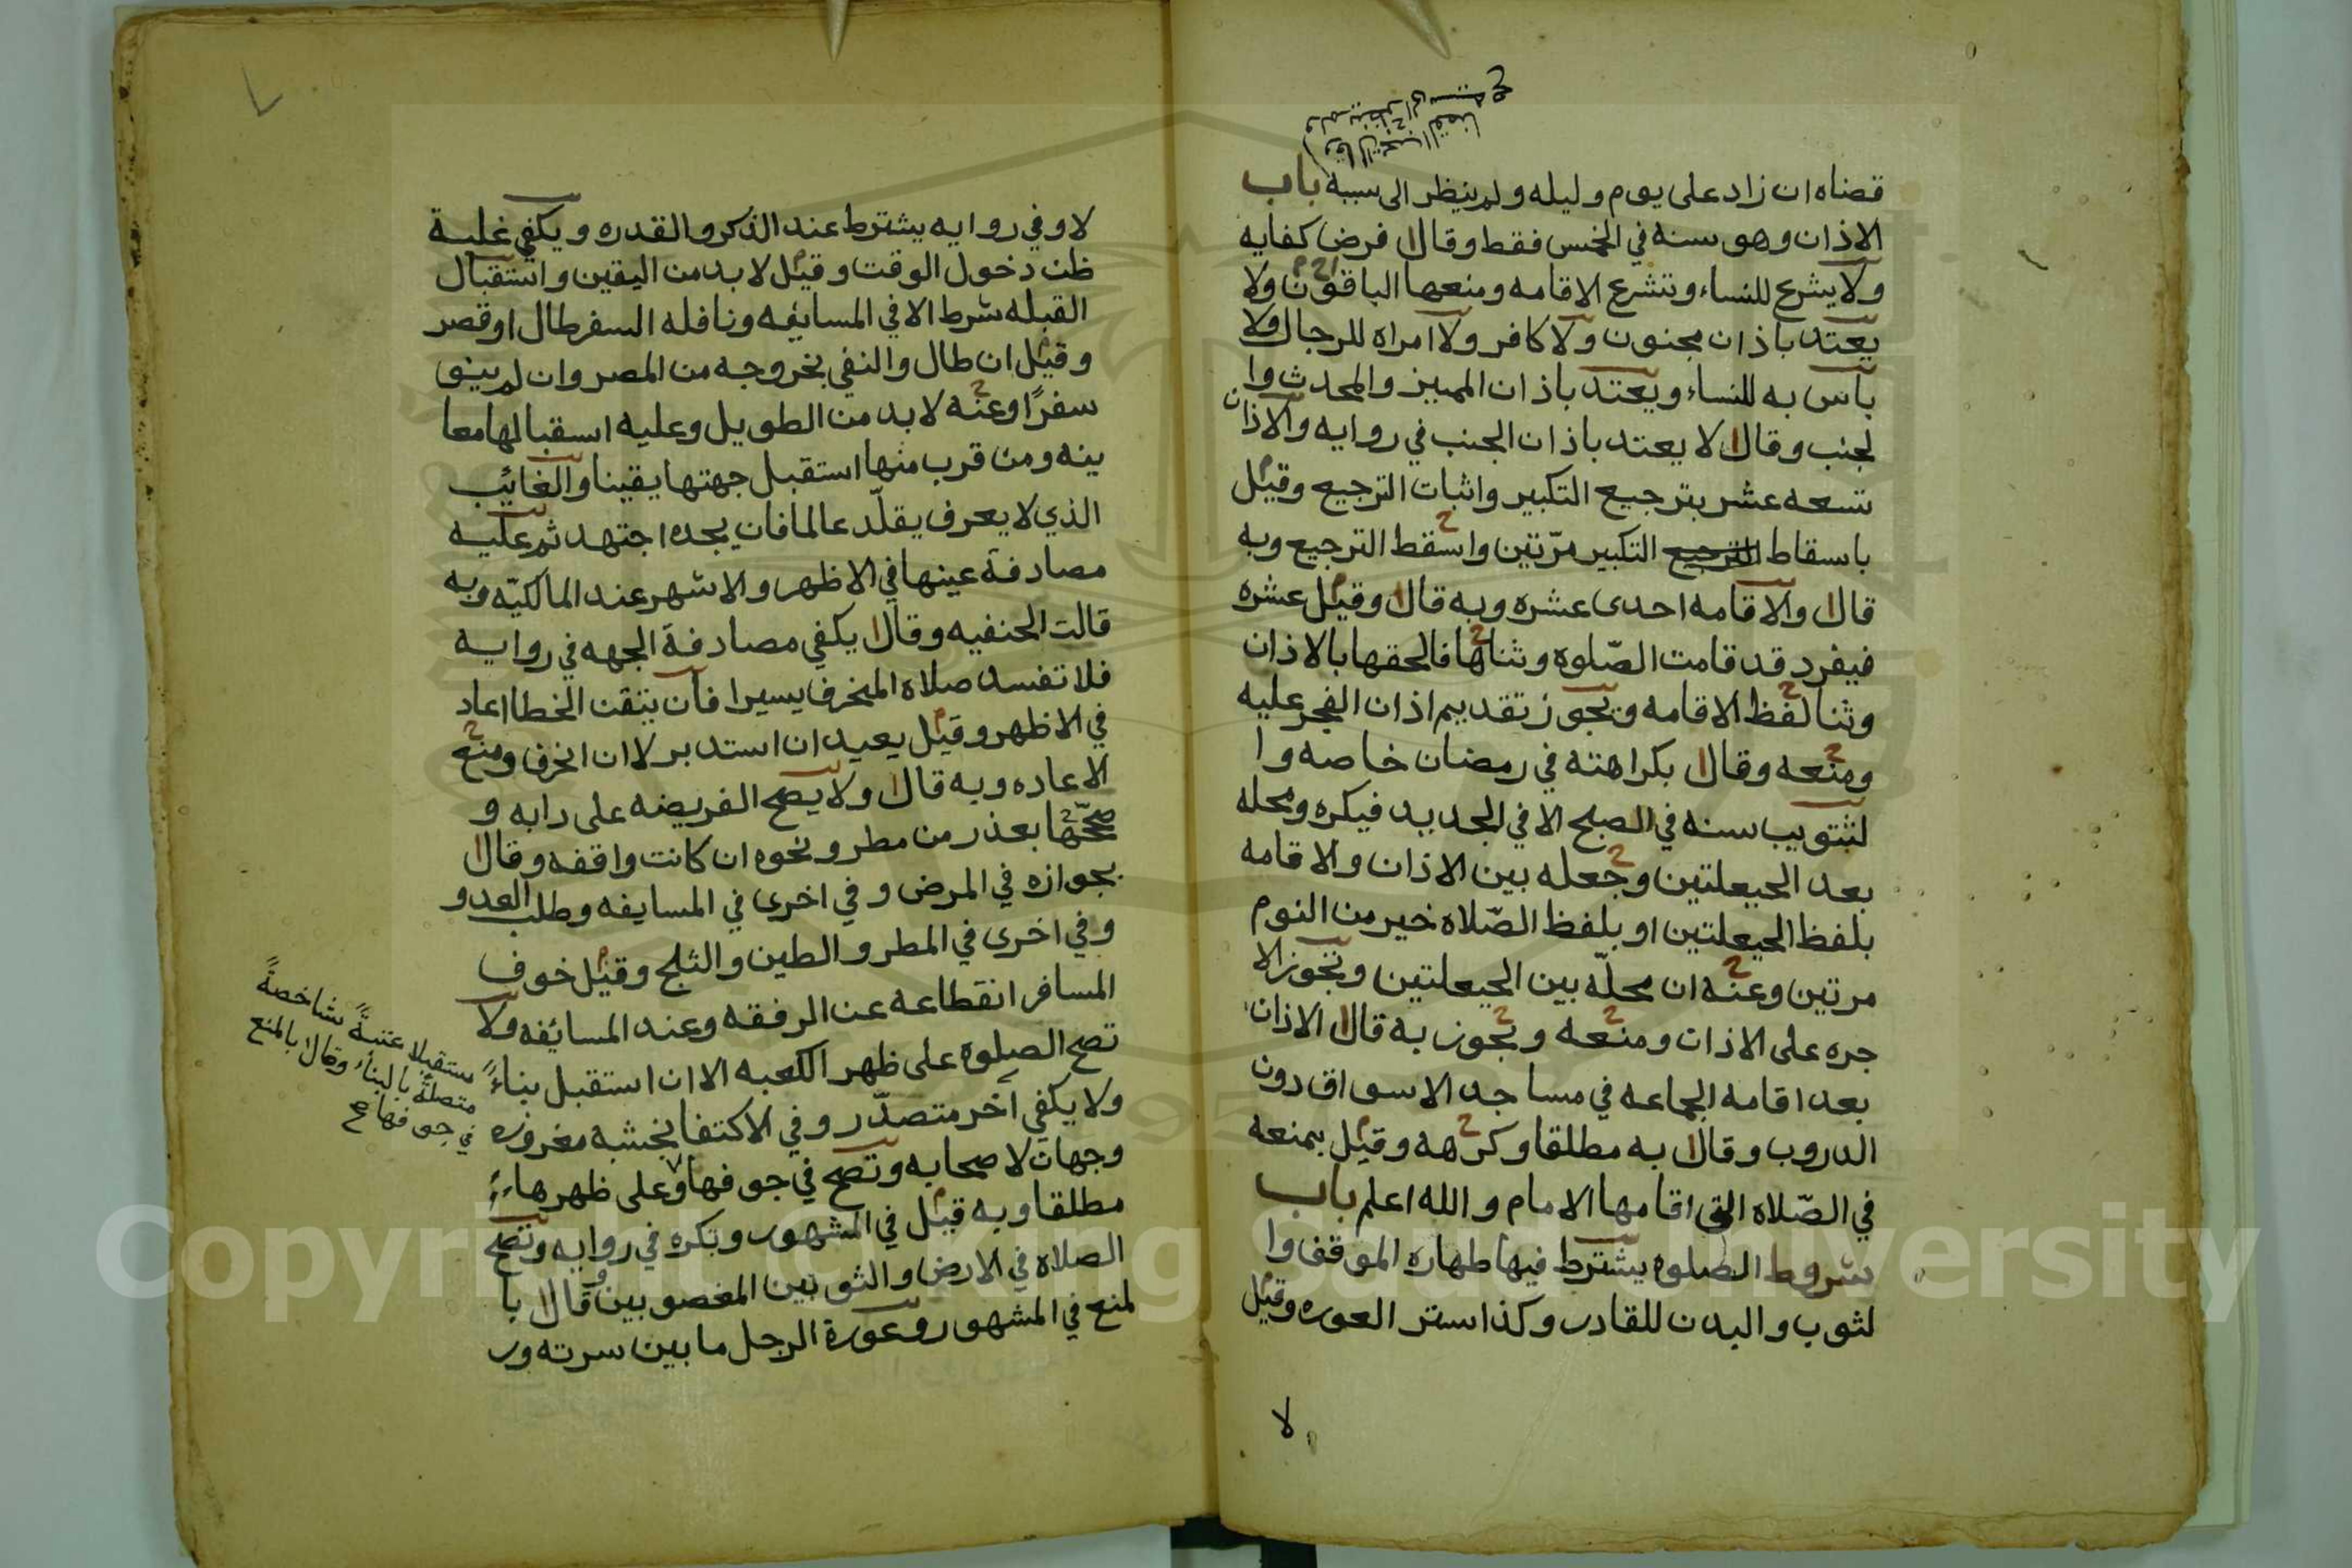 قضاه ان زاد على يوم وليله ولم ينظر الى سببه باب
الاذان وهو سنه في الخمس فقط وقال ا فرض كفايه
ولا يشرع للنساء وتشرع الاقامه ومنعها الباقون ولا
يعتد باذان مجنون ولا كافر ولا امراه للرجال ولا
باس به للنساء ويعتد باذان المميز والمحدث وا
لجنب وقال ا لا يعتد باذان الجنب في روايه والاذان
تسعه عشر بترجيع التكبير واثبات الترجيع وقيل
باسقاط التكبير مرّتين واسقط الترجيع وبه
قال ا والاقامه احدى عشره وبه قال ا وقيل عشره
فيفرد قد قامت الصّلوه وثناها فالحقها بالاذان
وثنا لفظ الاقامه ويجوز تقديم اذان الفجر عليه
ومنعه وقال ا بكراهته في رمضان خاصه وا
لتثويب سنه في الصبح الا في الجديد فيكره ومحله
بعد الحيعلتين وجعله بين الاذان والاقامه
بلفظ الحيعلتين او بلفظ الصّلاه خير من النوم
مرتين وعنه ان محلّه بين الحيعلتين وتجوز الا
جره على الاذان ومنعه ويجوز به قال ا الاذان
بعد اقامه الجماعه في مساجد الاسواق دون
الدروب وقال ا به مطلقا وكرهه وقيل بمنعه
في الصّلاه التي اقامها الامام والله اعلم باب
شروط الصلوه يشترط فيها طهاره الموقف وا
لثوب والبدن للقادر وكذا ستر العوره وقيل
لا
لا وفي روايه يشترط عند الذكر والقدره ويكفي غلبة
ظن دخول الوقت وقيل لا بد من اليقين واستقبال
القبله شرط الا في المسايفه ونافله السفر طال او قصر
وقيل ان طال والنفي بخروجه من المصر وان لم ينو
سفرًا وعنه لا بد من الطويل وعليه اسقبالها معا
ينه ومن قرب منها استقبل جهتها يقينا والغائب
الذي لا يعرف يقلّد عالما فان يجده اجتهد ثم عليه
مصادفة عينها في الاظهر والاشهر عند المالكيّه وبه
قالت الحنفيه وقال ا يكفي مصادفة الجهه في روايه
فلا تفسد صلاه المنحرف يسيرا فان يتقن الخطا اعاد
في الاظهر وقيل يعيد ان استدبر لا ان انحرف ومنع
الاعاده وبه قال ا ولا يصح الفريضه على دابه و
صححّها بعذر من مطر ونحوه ان كانت واقفه وقال ا
بجوازه في المرض وفي اخرى في المسايفه وطلب العدو
وفي اخرى في المطر والطين والثلج وقيل خوف
المسافر انقطاعه عن الرفقه وعند المسائفه ولا
تصح الصلوه على ظهر الكعبه الا ان استقبل بناءً
ولا يكفي آخر متصدّر وفي الاكتفا بخشبه مغروزه
وجهان لاصحابه وتصح في جوفها وعلى ظهرها
مطلقا وبه قيل في المشهور وتكره في روايه وتصح
الصلاه في الارض والثوبين المغصوبين وقال ا با
لمنع في المشهور وعورة الرجل ما بين سرته ور
مستقبلا عتبةً شاخصةً
متصلةً بالبناء وقال ا بالمنع
في جوفها صح
Copyright © King Saud University